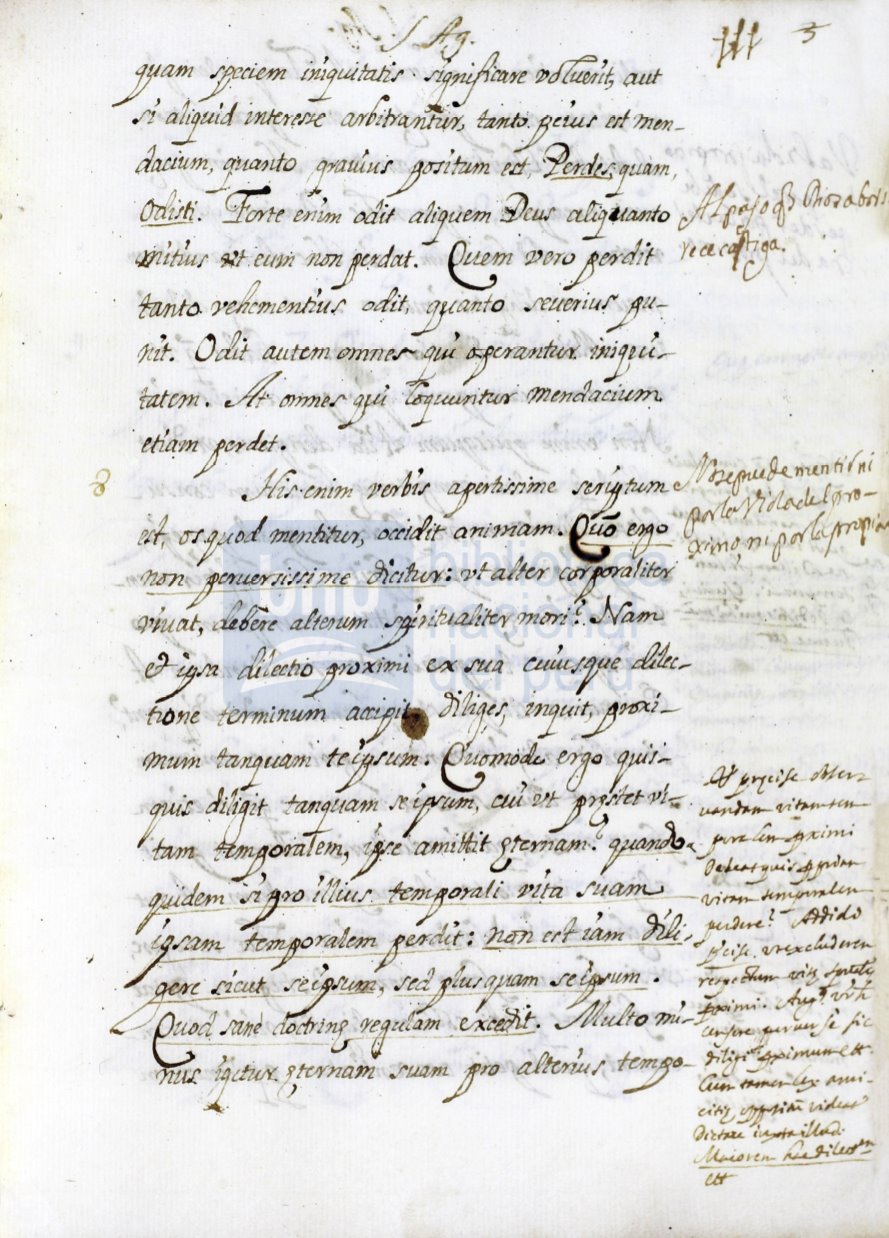 S. Ag. 3
quam speciem iniquitatis significare voluerit, aut
si aliquid interesse arbitrantur, tanto peius est men-
dacium, quanto gravius positum est, Perdes, quam,
Odisti. Forte enim odit aliquem Deus aliquanto
mitius vt eum non perdat. Quem vero perdit
tanto vehementius odit, quanto severius pu-
nit. Odit autem omnes qui operantur iniqui-
tatem. At omnes qui loquuntur mendacium
etiam perdet.
8 His enim verbis apertissime scriptum
est, os quod mentitur, occidit animam. Quõ ergo
non perversissime dicitur: vt alter corporaliter
vivat, debere alterum spiritualiter mori? Nam
et ipsa dilectio proximi ex sua cuiusque dilec-
tione terminum accipit, diliges, inquit, proxi-
mum tanquam teipsum. Quomodo ergo quis-
quis diligit tanquam seipsum, cui vt pręstet vi-
tam temporalem, ipse amittit ęternam? quando-
quidem si pro illius temporali vita suam
ipsam temporalem perdit: non est iam dili-
gere sicut seipsum, sed plusquam seipsum.
Quod sane doctrinę regulam excedit. Multo mi-
nus igitur ęternam suam pro alterius tempo-
Al paso q̃ Dios abor-
rece castiga.
No se puede mentir ni
por la vida del pro-
ximo, ni por la propia
observ-
vitam tem-
poralem proximi
vitam temporalem
perdere? Addidi
vt excluderem
respectum vitę
proximi.
proximum ett.
ami-
citię
Dictare iuxta illud:
Maiorem hac dilect.em
ett
biblioteca
nacional
del perú
bnp